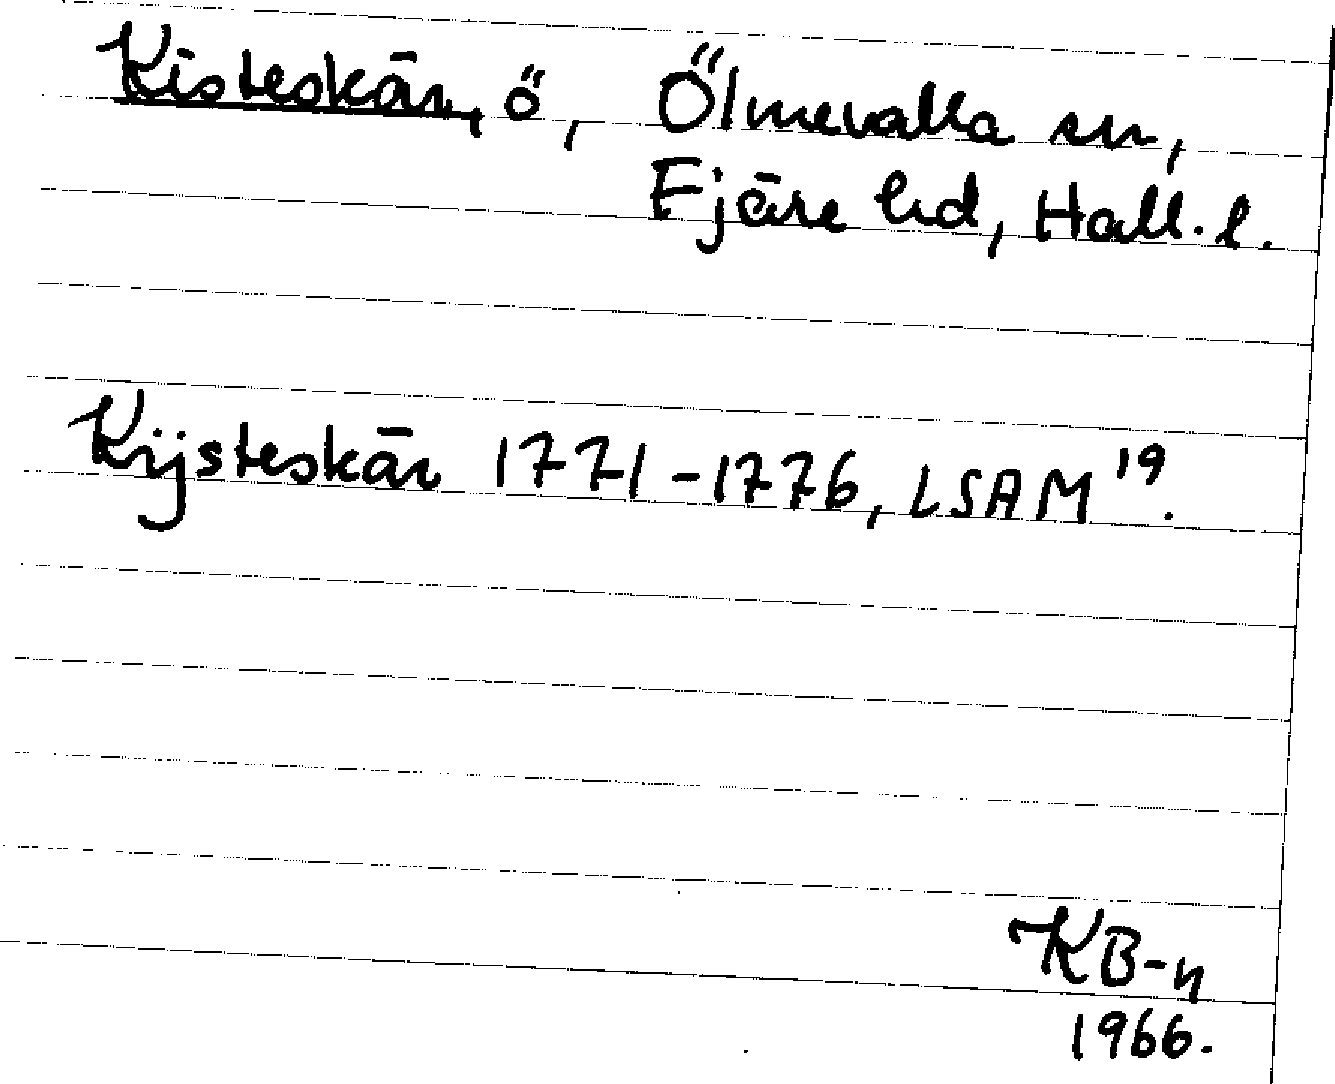 Kisteskär, ö, Ölmevalla sn,
Fjäre hd, Hall. l.
Kijsteskär 1771-1776, LSAM 19.
KB-n
1966.